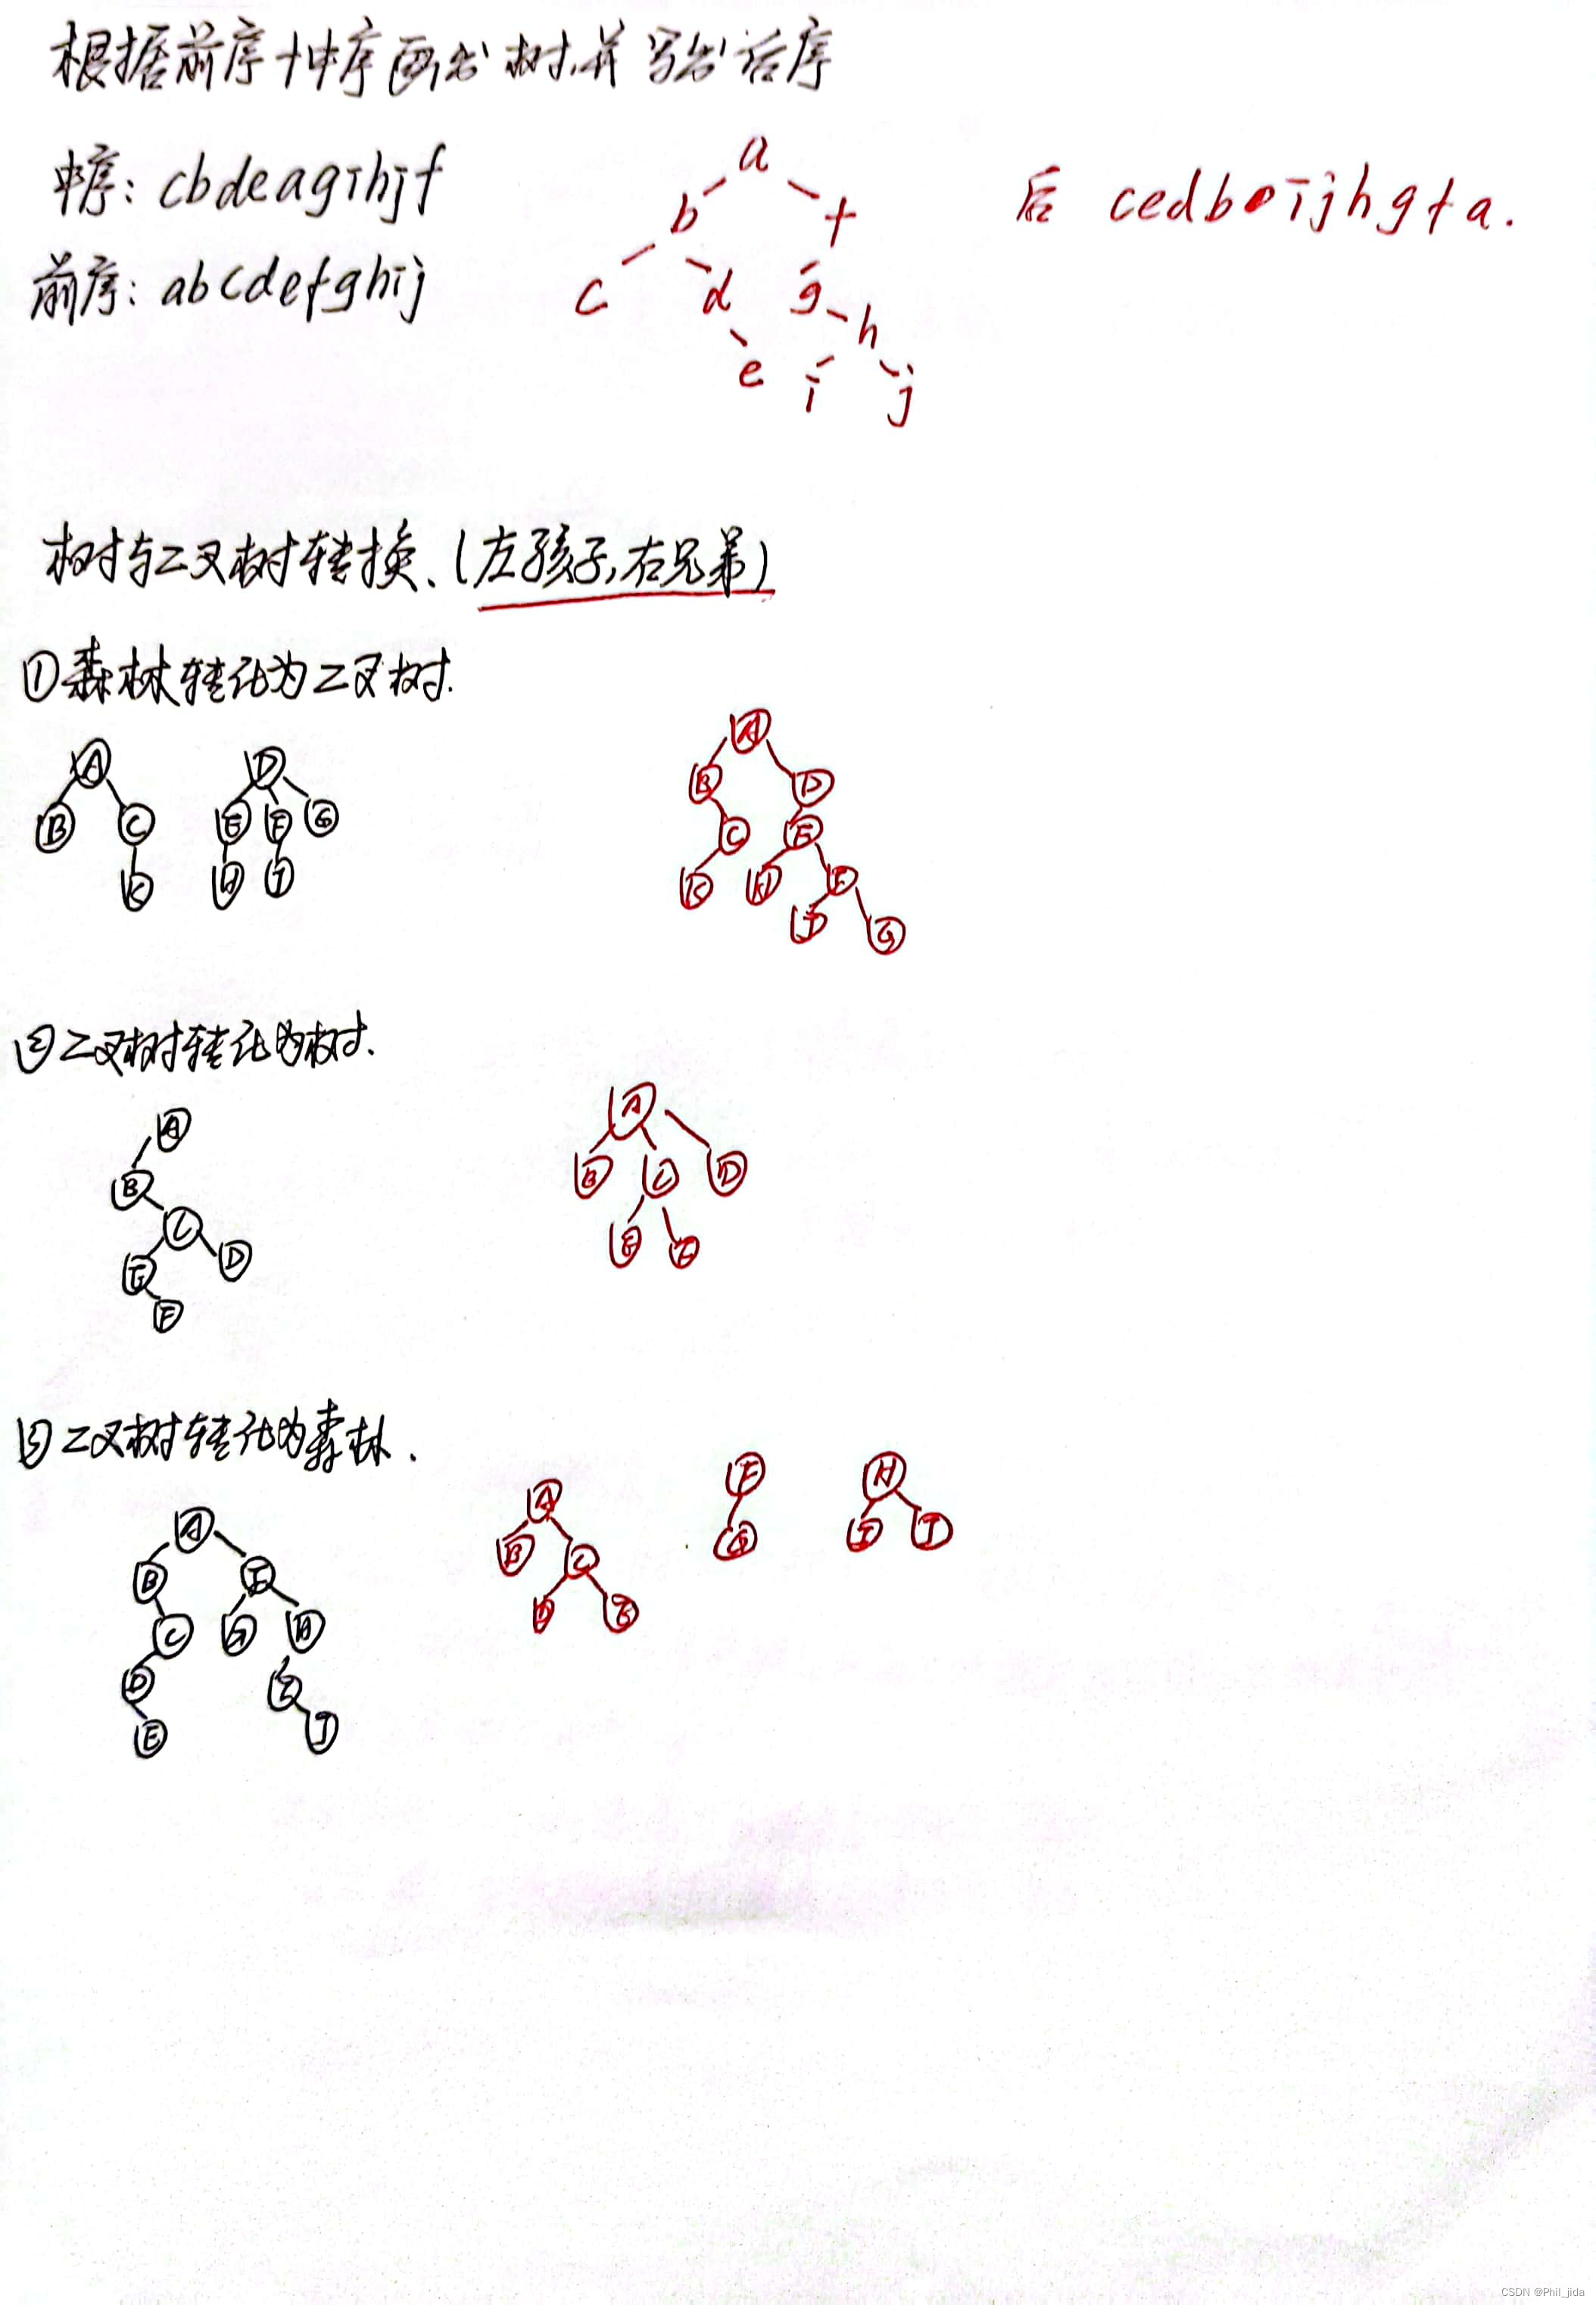 根据前序+中序画出树,并写出后序
中序: cbdeagihjf
前序: abcdefghij
a
b f
c d g h
e i j
后 cedbijhgfa.
树与二叉树转换、(左孩子,右兄弟)
①森林转化为二叉树.
A D
B C E F G
K H J
A
B D
C E
K H F
J G
②二叉树转化为树.
A
B
C
E D
F
A
B C D
E F
③二叉树转化为森林.
A
B F
C G H
D I
E J
A F H
B C G I J
D E
CSDN @Phil_jida